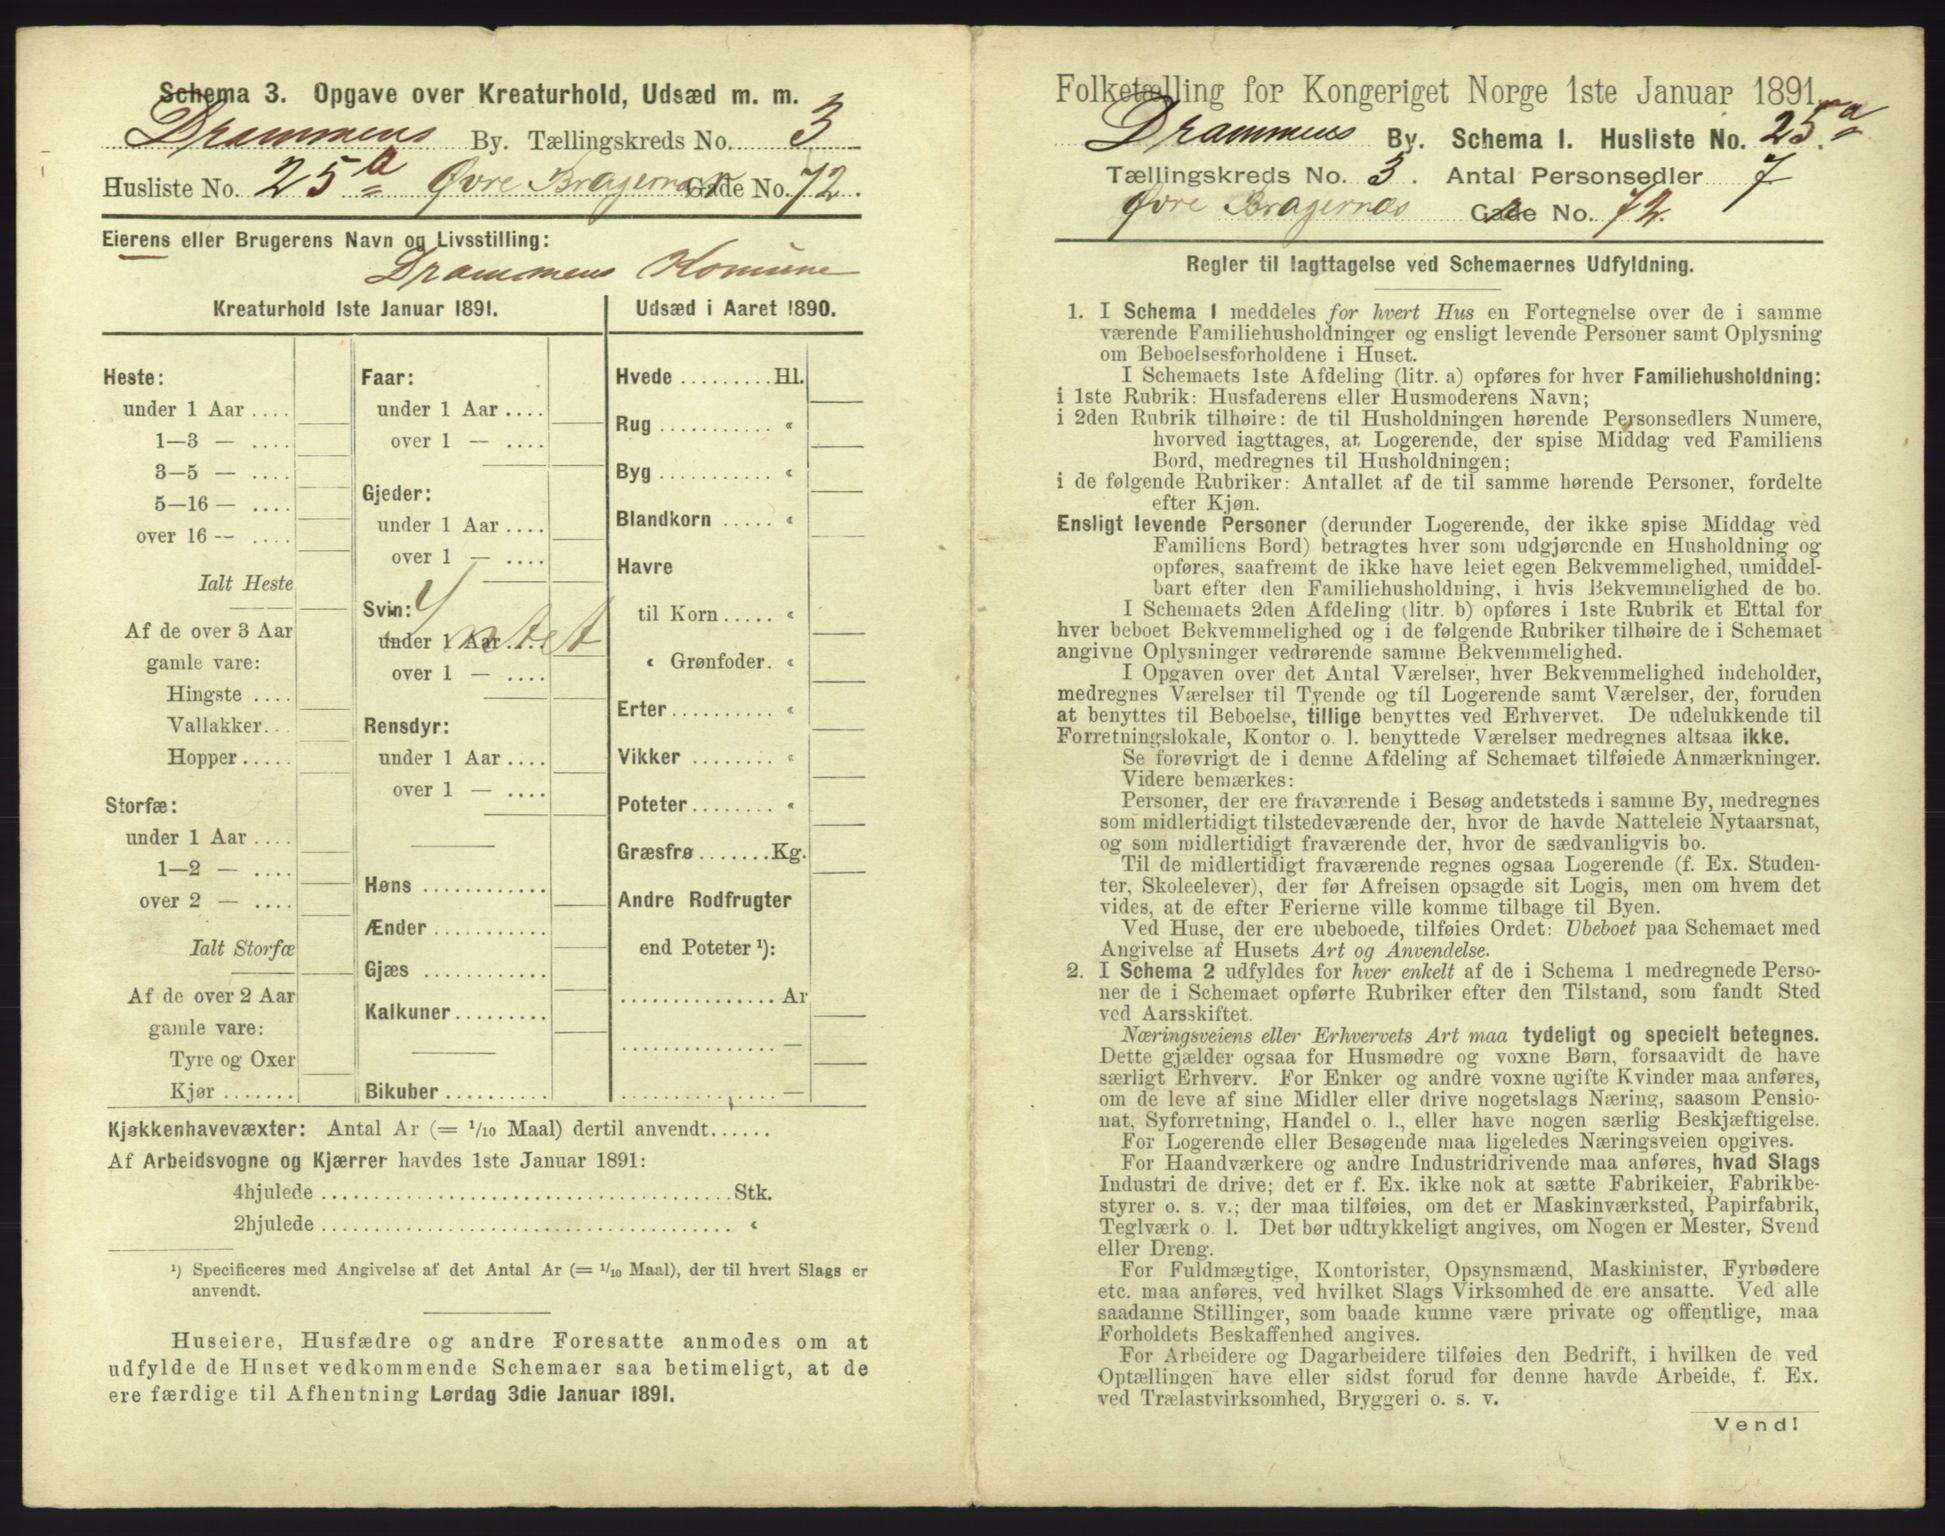 Schema 3. Opgave over Kreaturhold, Udsæd m. m.
Drammens By. Tællingskreds No. 3
Husliste No. 25 a Øvre Bragernæs Gade No. 72.
Eierens eller Brugerens Navn og Livsstilling:
Drammens Komune
Kreaturhold 1ste Januar 1891.
Heste:
under 1 Aar ....
1—3 — ....
3—5 — ....
5—16 — ....
over 16 — ....
Ialt Heste
Af de over 3 Aar
gamle vare:
Hingste ....
Vallakker..
Hopper.....
Storfæ:
under 1 Aar ....
1—2 — ....
over 2 — ....
Ialt Storfæ
Af de over 2 Aar
gamle vare:
Tyre og Oxer
Kjør .......
Faar:
under 1 Aar ....
over 1 — ....
Gjeder:
under 1 Aar ....
over 1 — ....
Svin:
under 1 Aar ....
Intet
over 1 — ....
Rensdyr:
under 1 Aar ....
over 1 — ....
Høns ............
Ænder ...........
Gjæs ............
Kalkuner.........
Bikuber ..........
Udsæd i Aaret 1890.
Hvede .........Hl.
Rug ........... «
Byg ........... «
Blandkorn ..... «
Havre
til Korn ..... «
« Grønfoder. «
Erter.......... «
Vikker ........ «
Poteter........ «
Græsfrø .......Kg.
Andre Rodfrugter
end Poteter ¹):
...............Ar
............... —
............... —
Kjøkkenhavevæxter: Antal Ar (= 1/10 Maal) dertil anvendt......
Af Arbeidsvogne og Kjærrer havdes 1ste Januar 1891:
4hjulede .......................................Stk.
2hjulede ....................................... «
¹) Specificeres med Angivelse af det Antal Ar (= 1/10 Maal), der til hvert Slags er
anvendt.
Huseiere, Husfædre og andre Foresatte anmodes om at
udfylde de Huset vedkommende Schemaer saa betimeligt, at de
ere færdige til Afhentning Lørdag 3die Januar 1891.
Folketælling for Kongeriget Norge 1ste Januar 1891.
Drammens By. Schema 1. Husliste No. 25 a
Tællingskreds No. 3. Antal Personsedler 7.
Øvre Bragernæs Gade No. 72.
Regler til Iagttagelse ved Schemaernes Udfyldning.
1. I Schema 1 meddeles for hvert Hus en Fortegnelse over de i samme
værende Familiehusholdninger og ensligt levende Personer samt Oplysning
om Beboelsesforholdene i Huset.
I Schemaets 1ste Afdeling (litr. a) opføres for hver Familiehusholdning:
i 1ste Rubrik: Husfaderens eller Husmoderens Navn;
i 2den Rubrik tilhøire: de til Husholdningen hørende Personsedlers Numere,
hvorved iagttages, at Logerende, der spise Middag ved Familiens
Bord, medregnes til Husholdningen;
i de følgende Rubriker: Antallet af de til samme hørende Personer, fordelte
efter Kjøn.
Ensligt levende Personer (derunder Logerende, der ikke spise Middag ved
Familiens Bord) betragtes hver som udgjørende en Husholdning og
opføres, saafremt de ikke have leiet egen Bekvemmelighed, umiddel-
bart efter den Familiehusholdning, i hvis Bekvemmelighed de bo.
I Schemaets 2den Afdeling (litr. b) opføres i 1ste Rubrik et Ettal for
hver beboet Bekvemmelighed og i de følgende Rubriker tilhøire de i Schemaet
angivne Oplysninger vedrørende samme Bekvemmelighed.
I Opgaven over det Antal Værelser, hver Bekvemmelighed indeholder,
medregnes Værelser til Tyende og til Logerende samt Værelser, der, foruden
at benyttes til Beboelse, tillige benyttes ved Erhvervet. De udelukkende til
Forretningslokale, Kontor o. l. benyttede Værelser medregnes altsaa ikke.
Se forøvrigt de i denne Afdeling af Schemaet tilføiede Anmærkninger.
Videre bemærkes:
Personer, der ere fraværende i Besøg andetsteds i samme By, medregnes
som midlertidigt tilstedeværende der, hvor de havde Natteleie Nytaarsnat,
og som midlertidigt fraværende der, hvor de sædvanligvis bo.
Til de midlertidigt fraværende regnes ogsaa Logerende (f. Ex. Studen-
ter, Skoleelever), der før Afreisen opsagde sit Logis, men om hvem det
vides, at de efter Ferierne ville komme tilbage til Byen.
Ved Huse, der ere ubeboede, tilføies Ordet: Ubeboet paa Schemaet med
Angivelse af Husets Art og Anvendelse.
2. I Schema 2 udfyldes for hver enkelt af de i Schema 1 medregnede Perso-
ner de i Schemaet opførte Rubriker efter den Tilstand, som fandt Sted
ved Aarsskiftet.
Næringsveiens eller Erhvervets Art maa tydeligt og specielt betegnes.
Dette gjælder ogsaa for Husmødre og voxne Børn, forsaavidt de have
særligt Erhverv. For Enker og andre voxne ugifte Kvinder maa anføres,
om de leve af sine Midler eller drive nogetslags Næring, saasom Pensio-
nat, Syforretning, Handel o. l., eller have nogen særlig Beskjæftigelse.
For Logerende eller Besøgende maa ligeledes Næringsveien opgives.
For Haandværkere og andre Industridrivende maa anføres, hvad Slags
Industri de drive; det er f. Ex. ikke nok at sætte Fabrikeier, Fabrikbe-
styrer o. s. v.; der maa tilføies, om det er Maskinværksted, Papirfabrik,
Teglværk o. l. Det bør udtrykkeligt angives, om Nogen er Mester, Svend
eller Dreng.
For Fuldmægtige, Kontorister, Opsynsmænd, Maskinister, Fyrbødere
etc. maa anføres, ved hvilket Slags Virksomhed de ere ansatte. Ved alle
saadanne Stillinger, som baade kunne være private og offentlige, maa
Forholdets Beskaffenhed angives.
For Arbeidere og Dagarbeidere tilføies den Bedrift, i hvilken de ved
Optællingen have eller sidst forud for denne havde Arbeide, f. Ex.
ved Trælastvirksomhed, Bryggeri o. s. v.
Vend!